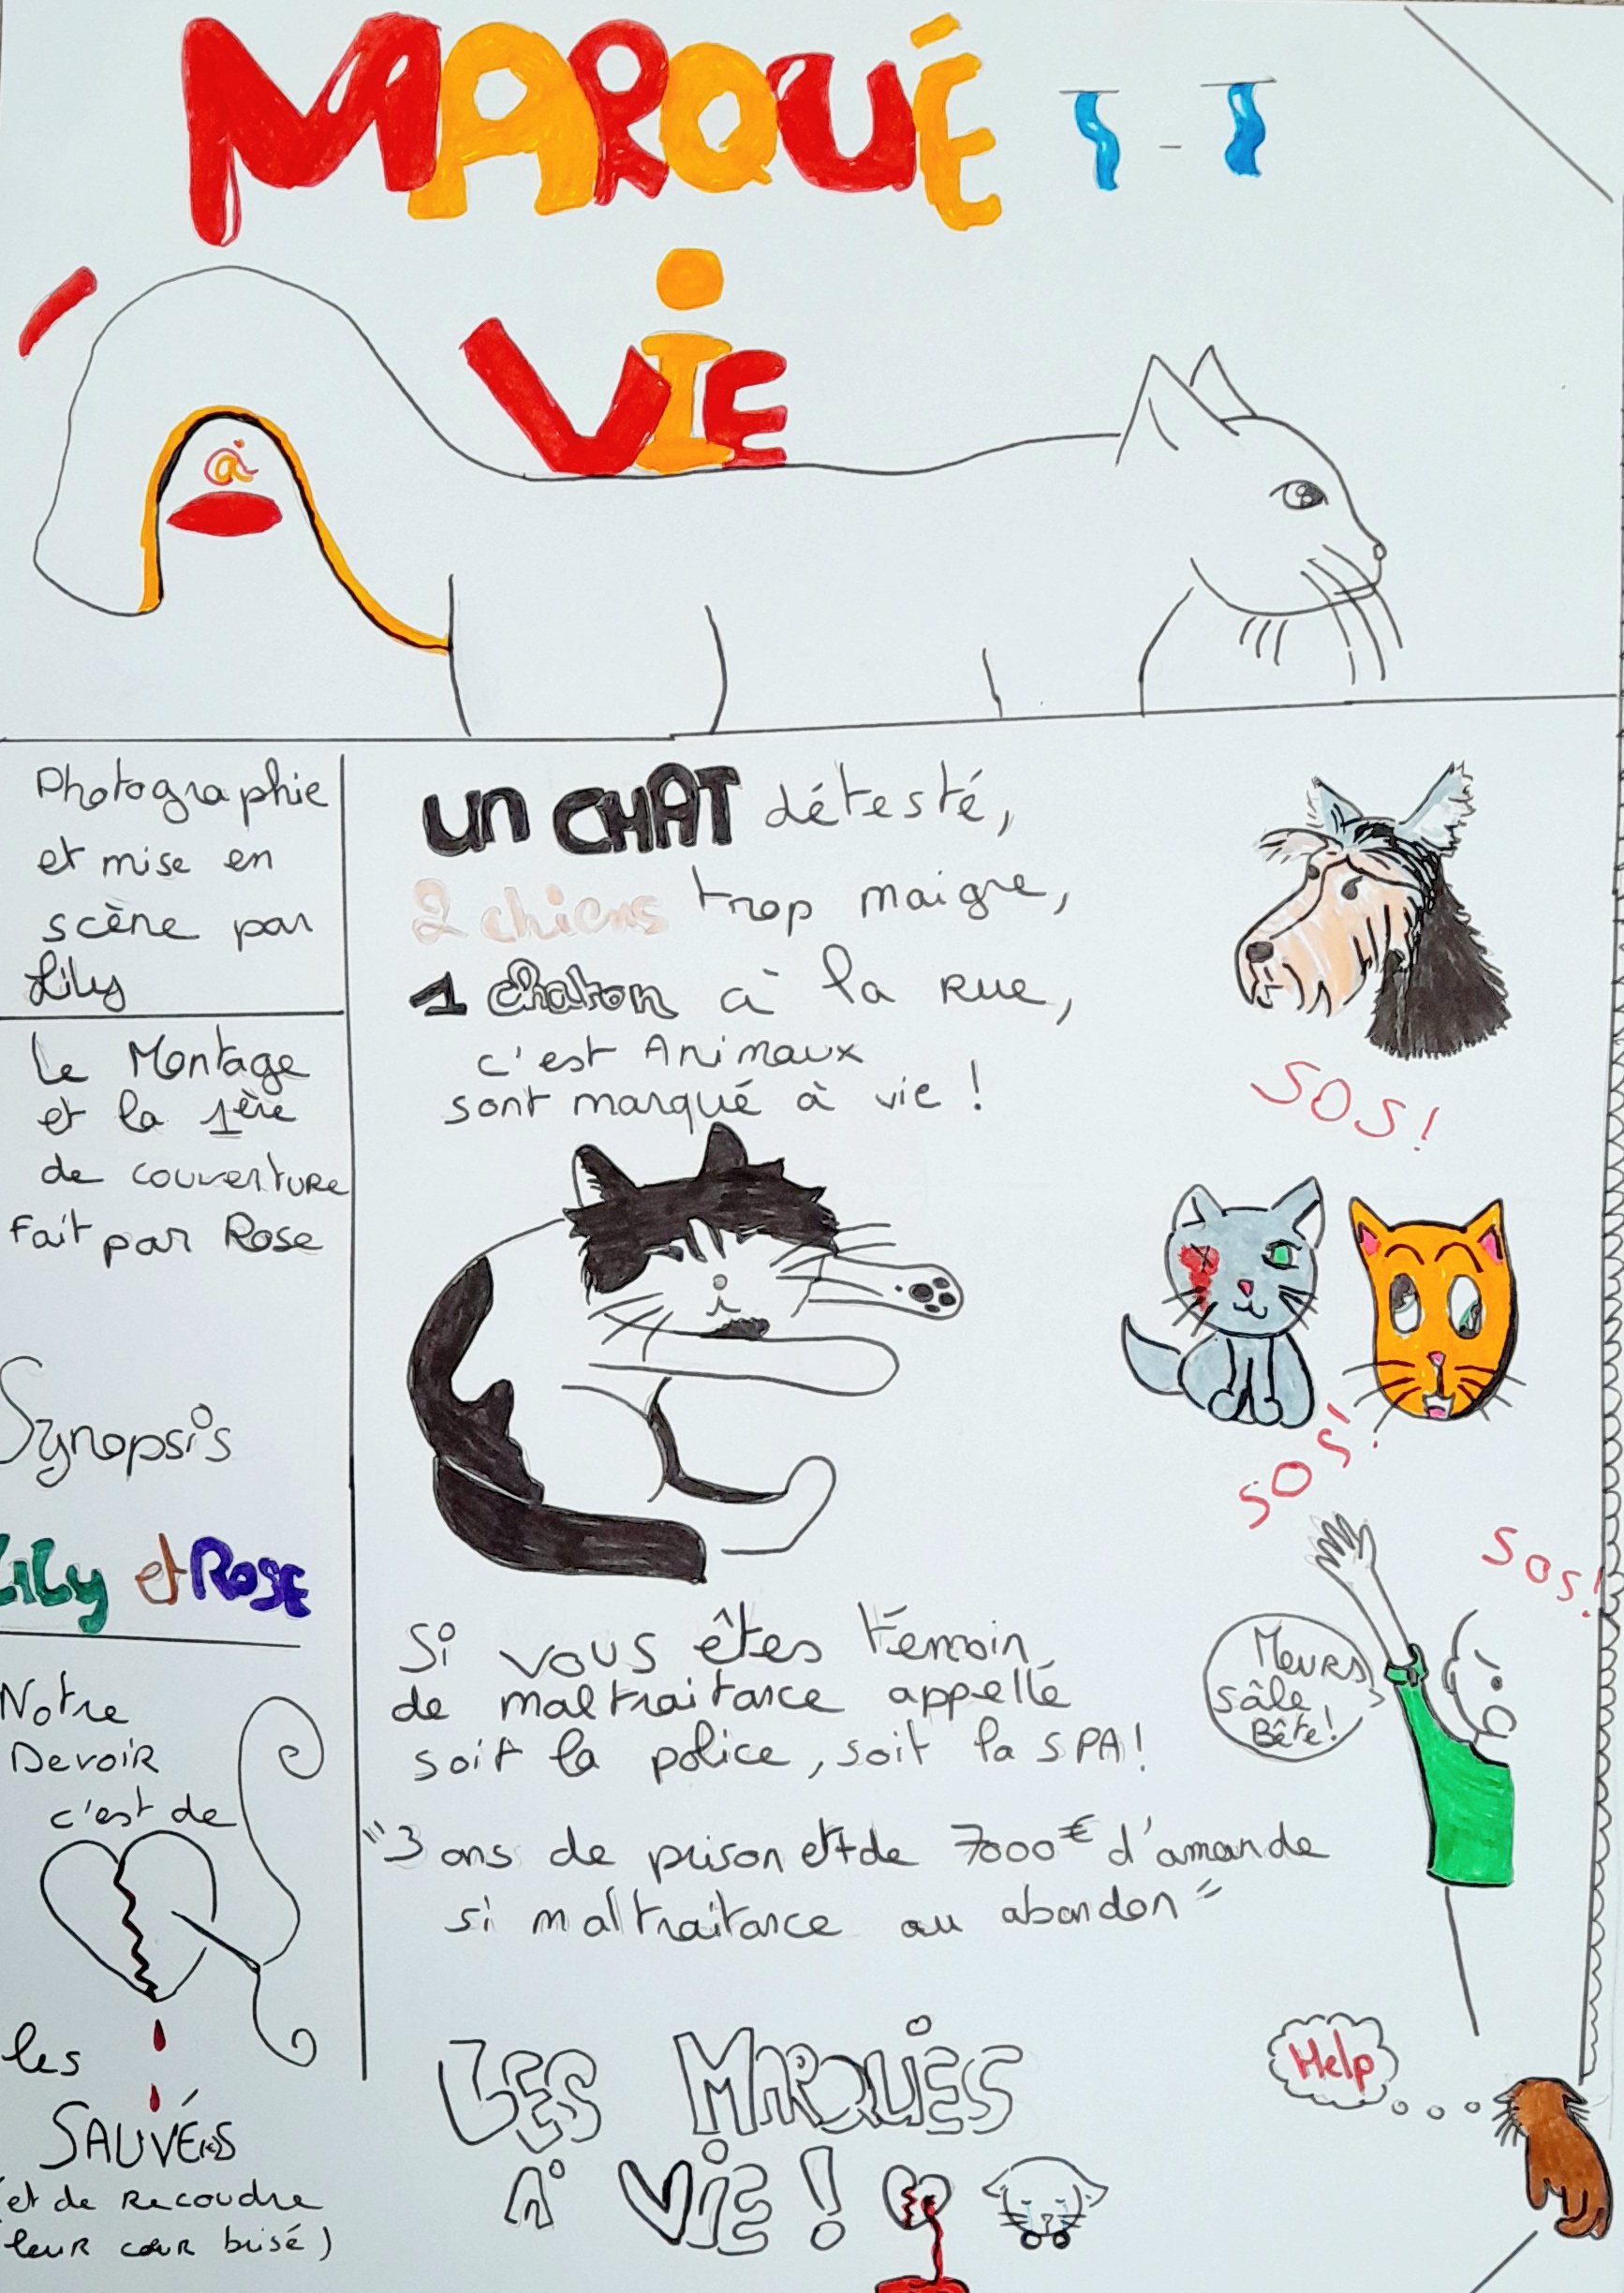 MARQUÉ T-T
à
ViE
Photographie
et mise en
scène par
Lily
Le Montage
et la 1ère
de couverture
Fait par Rose
Synopsis
LiLy et Rose
Notre
Devoir
c'est de
les
SAUVÉS
(et de Recoudre
leur cœur brisé)
Un CHAT détesté,
2 chiens trop maigre,
1 chaton à la Rue,
c'est Animaux
sont marqué à vie !
SOS!
SOS!
SOS!
Si vous êtes témoin
de maltraitance appellé
soit la police, soit la SPA!
Meurs
sâle
Bête!
"3 ans de prison et de 7000€ d'amande
si maltraitance ou abandon"
Help
LES MARQUÉS
A ViE !